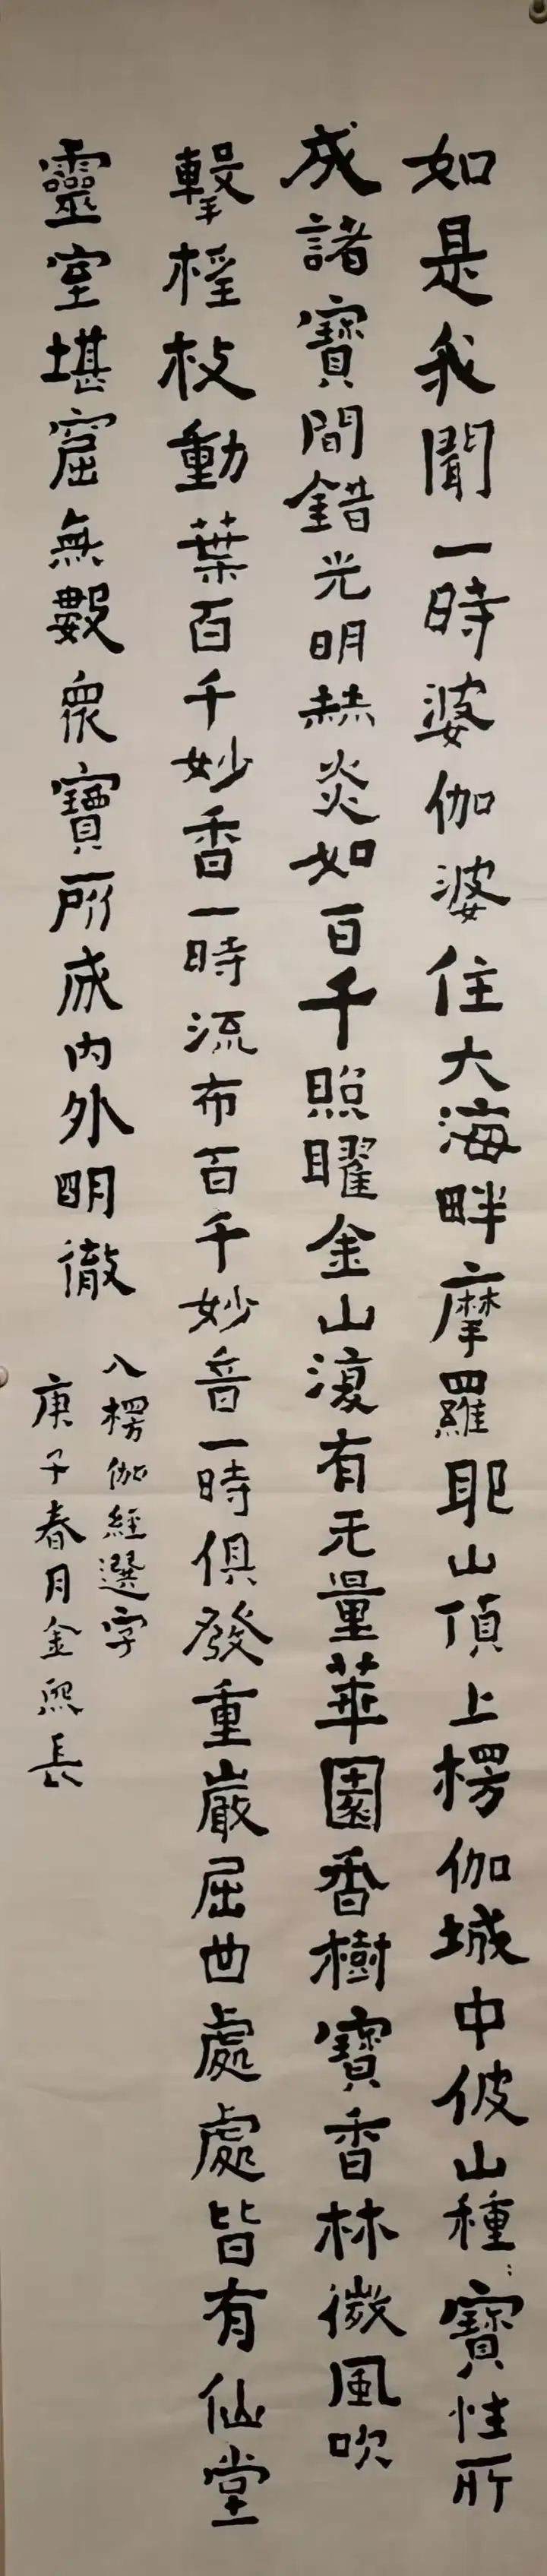 如是我聞一時婆伽婆住大海畔摩羅耶山頂上楞伽城中彼山種〻寶性所
成諸寶間錯光明赫炎如百千照曜金山復有无量華園香樹寶香林微風吹
擊榣枝動葉百千妙香一時流布百千妙音一時俱發重巖屈曲處處皆有仙堂
靈室堪窟無數衆寶所成內外明徹
入楞伽經選字
庚子春月金熙長